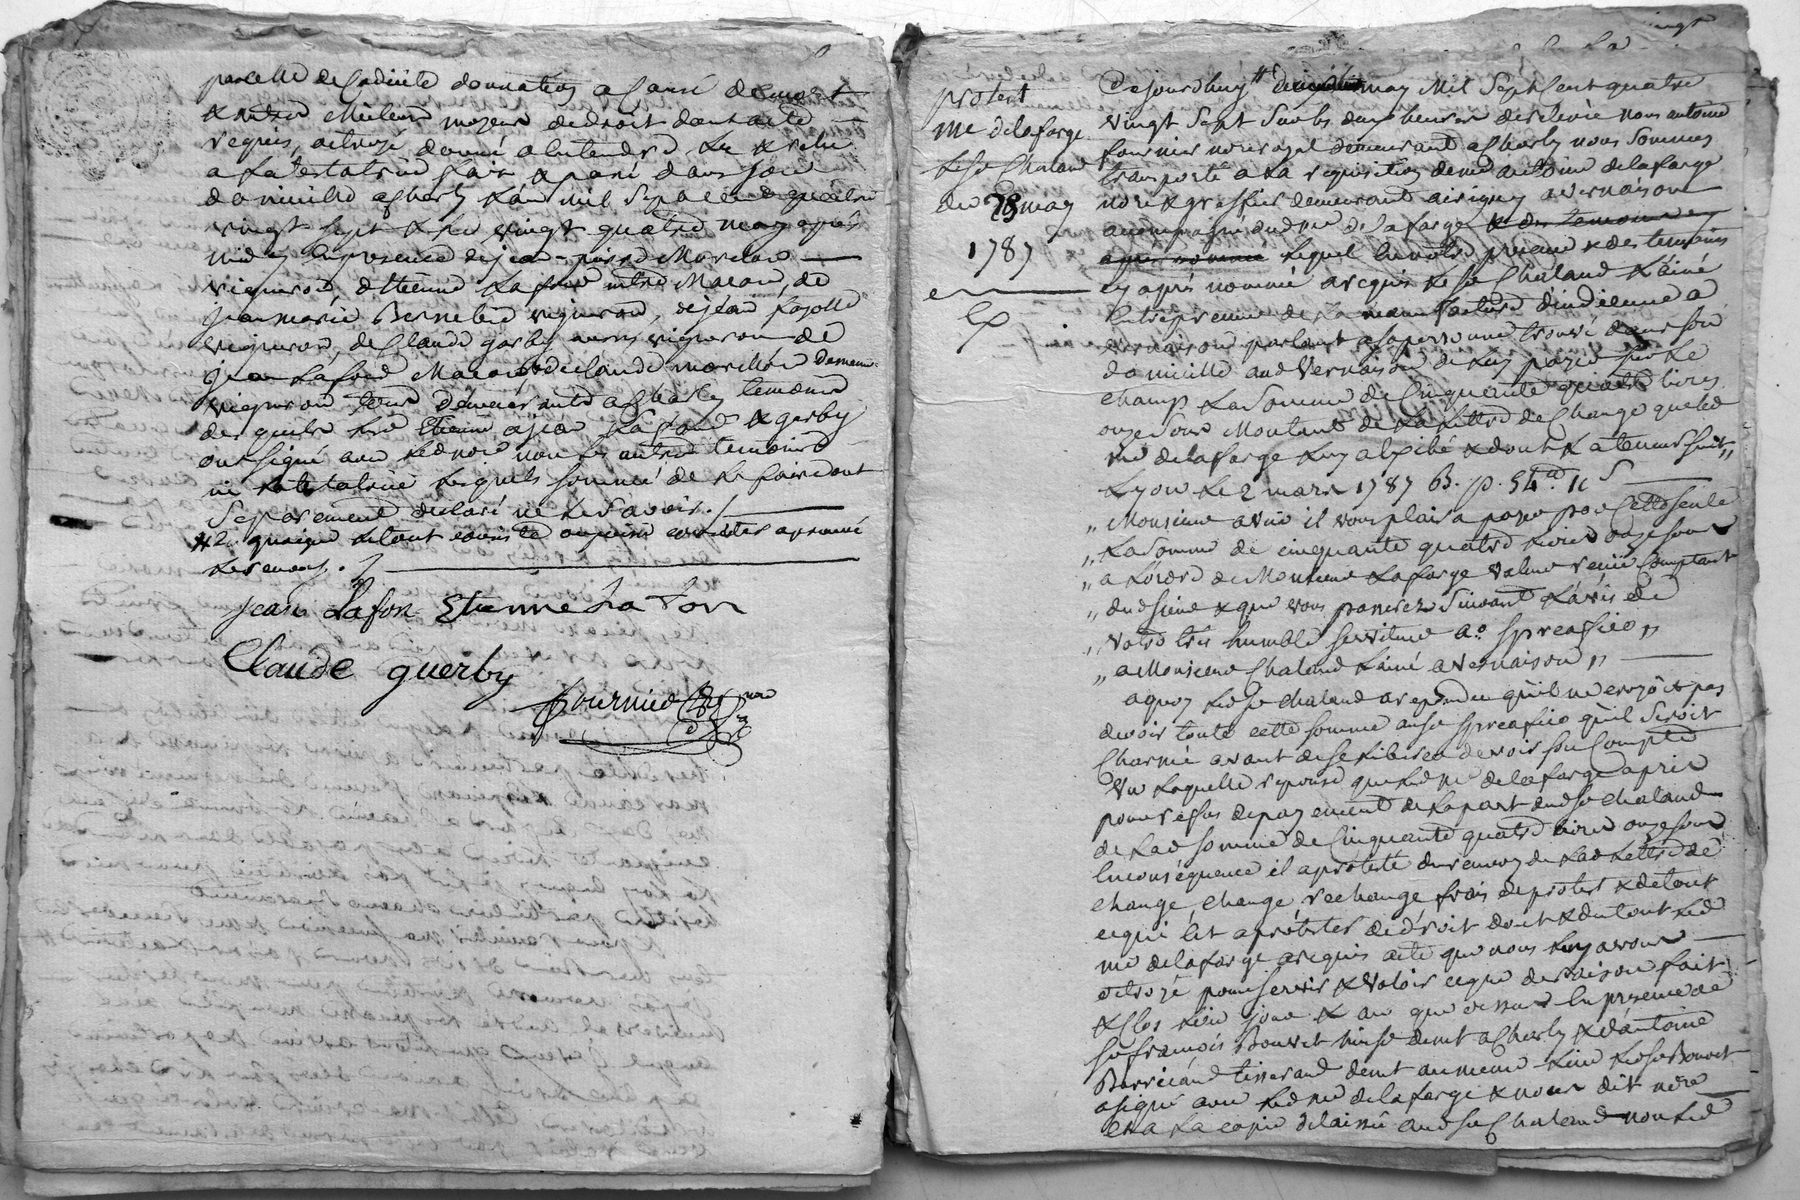 parcelle de ladite donnation a cause de mort
& autre meilleur moyen de droit dont acte
requis, octroyé donné a entendre lu & relu
a la testatrice fait & passé dans son
domicille a Charly l'an mil sept cent quatre
vingt sept & le vingt quatre may après
midy en presence de jean-pierre
vigneron Etienne Lafond mtre Macon, de
jean marie vigneron, de jean
vigneron, de Claude garby aussy vigneron de
jean Lafond Macon, & de claude
vigneron tous demeurants a Charly temoins
des quels led Etienne & jean Lafond & gerby
ont signé avec led nore non les autres temoins
ni la testatrice lesquels sommé de le faire ont
separement declaré ne le savoir ./.
jean Lafon Etienne La Fon
Claude guerby
fournier nre
protest
me delafarge
le Sr Chaland
du 28 may
1787
Cejourdhuy may Mil Sept Cent quatre
vingt Sept Sur les dix heures de relevée nous antoine
fournier nore royal demeurant a Charly nous Sommes
transporté a la requisition de me antoine delafarge
nore & greffier demeurant a irigny a vernaison
accompagné dud me delafarge & des temoins
après nommé lequel en notre presence & des temoins
cy après nommé a requis le Sr Chaland L'ainé
Entrepreneur de la manufacture d'indienne a
vernaison parlant a sa personne trouvé dans son
domicille aud Vernaison de luy payer sur le
champ la Somme de Cinquante quatre livres
onze sous Montant de la lettre de Change que led
me delafarge luy a exibé & dont la teneur suit „
Lyon le 2 mars 1787 B. p. 54 11 S
„ Monsieur a vüe il vous plaira payer par Cette seule
„ La Somme de cinquante quatre livres onze sous
„ a L'ordre de Monsieur Lafarge valeur reçüe Comptant
„ dud sieur & que vous passerez Suivant L'avis de
„ votre très humble serviteur Spreafico „
„ a Monsieur Chaland L'ainé a Vernaison „
a quoy led Sr Chaland a repondu qu'il ne croyoit pas
devoir toute cette somme au Sr Spreafico qu'il Seroit
Charmé avant de se liberer de voir son Compte
Vu laquelle reponse que led me delafarge a pris
pour refus de payement de la part dud Sr Chaland
de lad somme de Cinquante quatre livres onze sous
En consequence il a protesté du renvoy de lad Lettre de
change, change, rechange frais de protest & de tout
ce qui est a protester de droit dont & du tout led
me delafarge a requis acte que nous luy avons
octroyé pour servir & valoir ce que de raison fait
& clos lieu jour & an que dessus En presence de
Sr françois Bouvet demt a Charly & d'antoine
tisserand demt au meme lieu led Sr Bouvet
a signé avec led me delafarge & nous dit nore
& a la copie delaissée aud Sr Chaland non led